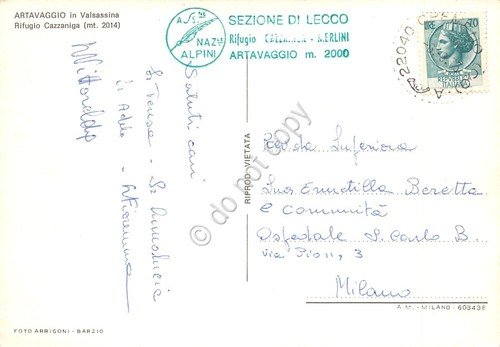 ARTAVAGGIO in Valsassina
Rifugio Cazzaniga (mt. 2014)
ASS.
NAZ.LE
ALPINI
SEZIONE DI LECCO
Rifugio CAZZANIGA - MERLINI
ARTAVAGGIO m. 2000
22040
70
REPUBBLICA
ITALIANA
Saluti cari
Sr Teresa - Sr
Sr Adele -
RIPROD. VIETATA
do not copy
Rev.da Superiora
Suor Ermetilla Beretta
e comunità
Ospedale S. Carlo B.
via Pio II, 3
Milano
FOTO ARRIGONI - BARZIO
A.M. - MILANO - 60343E